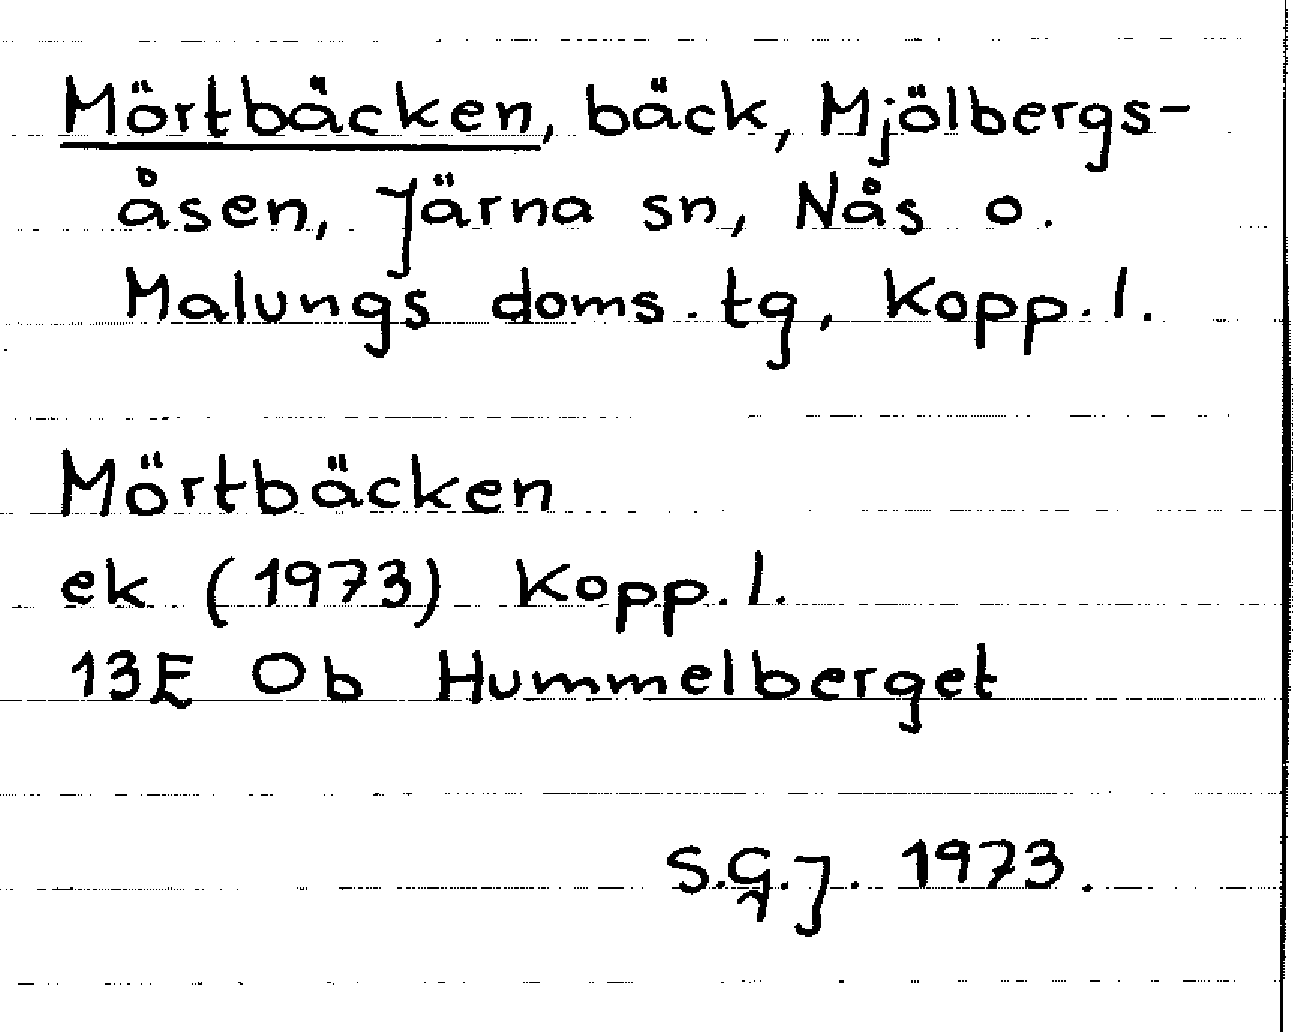 Mörtbäcken, bäck, Mjölbergs-
åsen, Järna sn, Nås o.
Malungs doms. tg, Kopp. l.
Mörtbäcken
ek (1973) Kopp. l.
13E Ob Hummelberget
S.G.J. 1973.